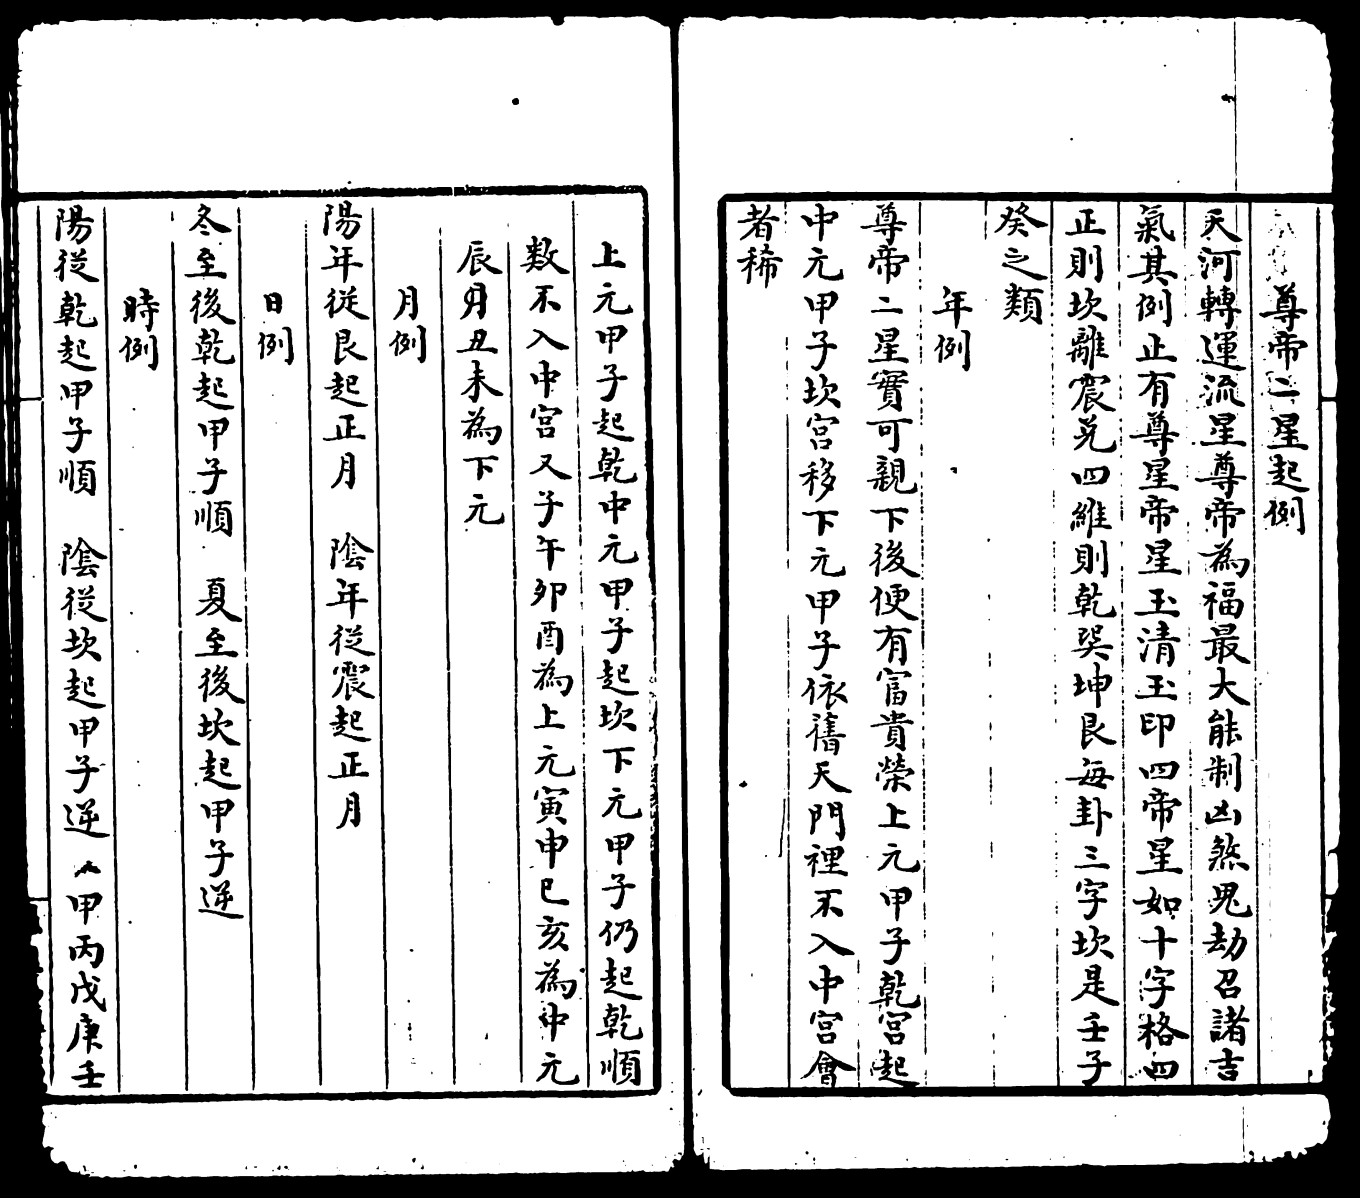 尊帝二星起例
天河轉運流星尊帝為福最大能制凶煞鬼劫召諸吉
氣其例止有尊星帝星玉清玉印四帝星如十字格四
正則坎離震兌四維則乾巽坤艮每卦三字坎是壬子
癸之類
年例
尊帝二星實可親下後便有富貴榮上元甲子乾宮起
中元甲子坎宮移下元甲子依舊天門裡不入中宮會
者稀
上元甲子起乾中元甲子起坎下元甲子仍起乾順
数不入中宮又子午卯酉為上元寅申巳亥為中元
辰丑未為下元
月例
陽年從艮起正月　陰年從震起正月
日例
冬至後乾起甲子順　夏至後坎起甲子逆
時例
陽從乾起甲子順　陰從坎起甲子逆　甲丙戊庚壬